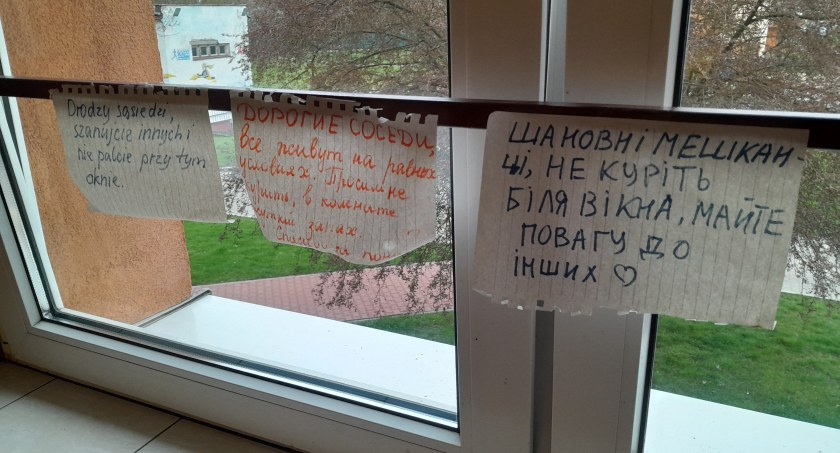 Drodzy sąsiedzi,
szanujcie innych i
nie palcie przy tym
oknie.
ДОРОГИЕ СОСЕДИ,
все живут на равных
условиях. Просим не
курить, в комнате
запах.
Спасибо за
ШАНОВНІ МЕШКАН-
ЦІ, НЕ КУРІТЬ
БІЛЯ ВІКНА, МАЙТЕ
ПОВАГУ ДО
ІНШИХ ♡